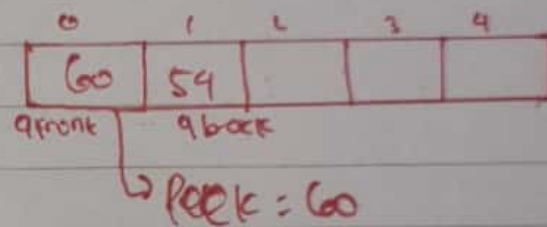 0 1 2 3 4
60 54
qfront qback
Peek = 60